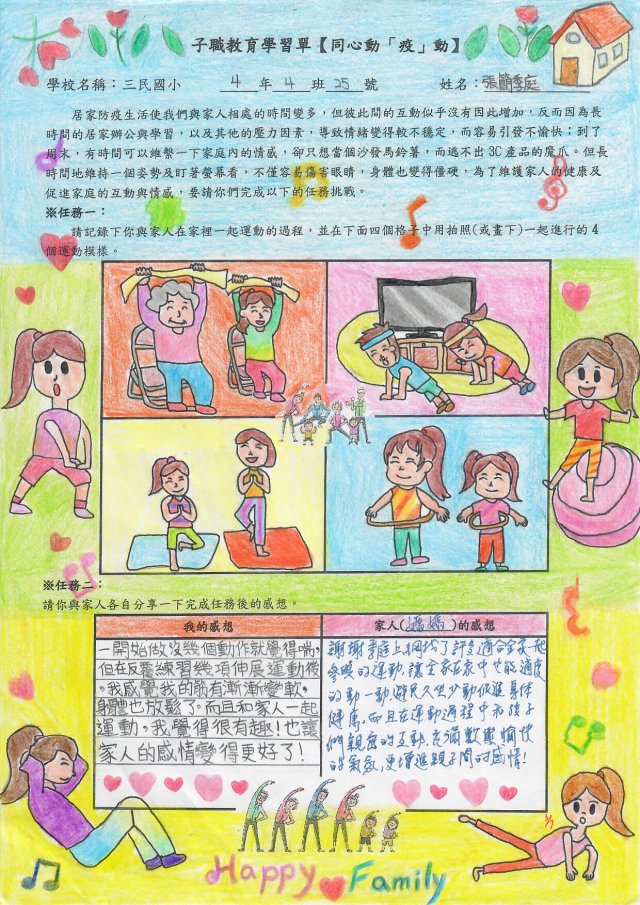 子職教育學習單【同心動「疫」動】
學校名稱：三民國小 4 年 4 班 25 號 姓名：張簡季庭
居家防疫生活使我們與家人相處的時間變多，但彼此間的互動似乎沒有因此增加，反而因為長
時間的居家辦公與學習，以及其他的壓力因素，導致情緒變得較不穩定，而容易引發不愉快；到了
周末，有時間可以維繫一下家庭內的情感，卻只想當個沙發馬鈴薯，而逃不出 3C 產品的魔爪。但長
時間地維持一個姿勢及盯著螢幕看，不僅容易傷害眼睛，身體也變得僵硬，為了維護家人的健康及
促進家庭的互動與情感，要請你們完成以下的任務挑戰。
※任務一：
請記錄下你與家人在家裡一起運動的過程，並在下面四個格子中用拍照(或畫下)一起進行的 4
個運動模樣。
※任務二：
請你與家人各自分享一下完成任務後的感想。
我的感想
一開始做沒幾個動作就覺得喘，
但在反覆練習幾項伸展運動後
，我感覺我的筋有漸漸變軟，
身體也放鬆了。而且和家人一起
運動，我覺得很有趣！也讓
家人的感情變得更好了！
家人(媽媽)的感想
謝謝季庭上網找了許多適合全家一起
參與的運動，讓全家在家中也能適度
的動一動，避免久坐少動保護身體
健康，而且在運動過程中和孩子
們親密的互動，充滿歡樂愉快
的氣氛，更增進親子間的感情！
Happy Family